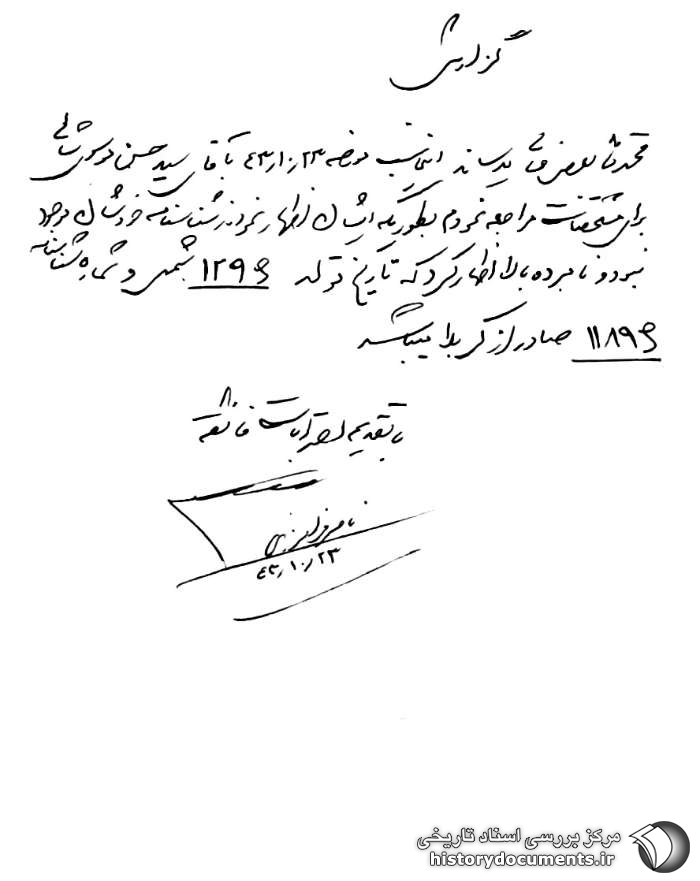 گزارش
محترماً بعرض عالی میرساند اینجانب مورخه ۴۳/۱۰/۲۳ با آقای سید حسن موسوی
برای مشخصات مراجعه نمودم بطوریکه ایشان اظهار نمودند شناسنامه خودشان موجود
نبود و نامبرده بالا اظهار کرد که تاریخ تولد ۱۲۹۶ شمسی و شماره شناسنامه
۱۱۸۹۶ صادره از کربلا میباشد
با تقدیم احترامات فائقه
۴۳/۱۰/۲۳
مرکز بررسی اسناد تاریخی
historydocuments.ir